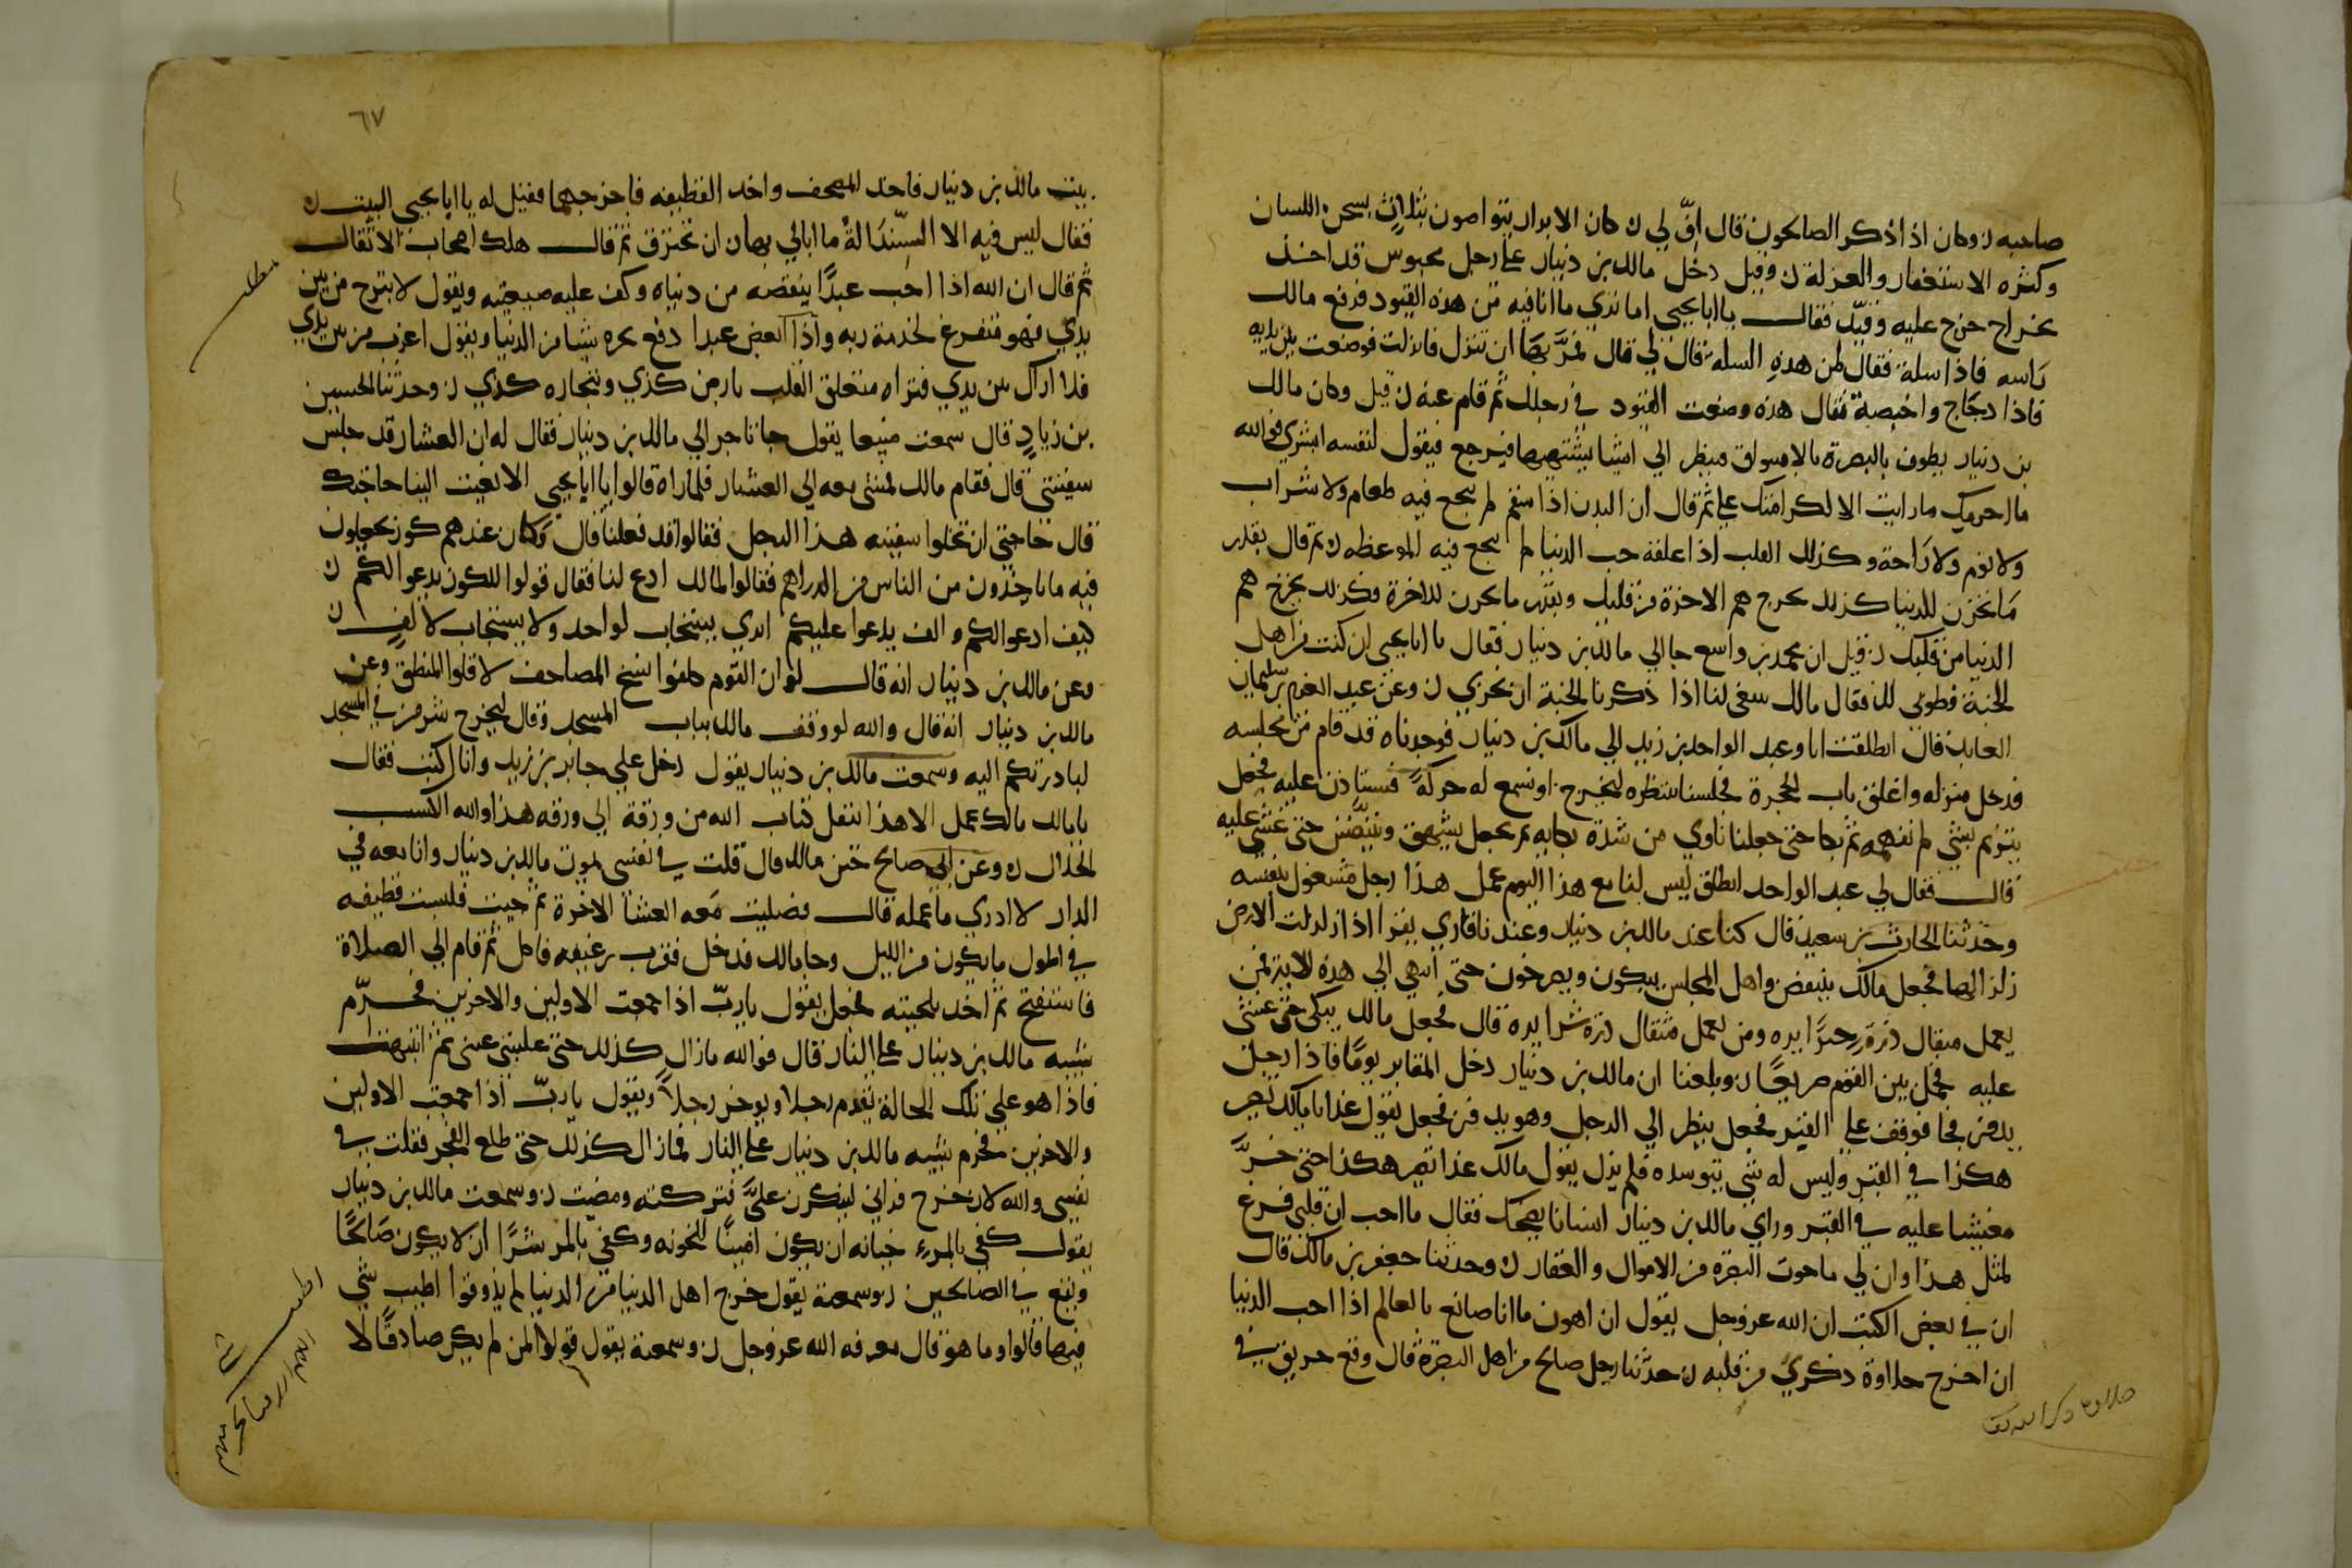 صاحبه ن وكان اذا ذكر الصالحون قال افّ لي ن كان الابرار يتواصون بثلاث بسجن اللسان
وكثره الاستغفار والعزلة ن وقيل دخل مالك بن دينار على رجل محبوس قد اخذ
بخراج خرج عليه وقيّد فقال يا ابا يحيى اما ترى ما انا فيه من هذه القيود فرفع مالك
راسه فاذا سلة فقال لمن هذه السله قال لي قال فمُر بها ان تنزل فانزلت فوضعت بين يديه
فاذا دجاج واخبصة فقال هذه وضعت القيود في رجلك ثم قام عنه ن قيل وكان مالك
بن دينار يطوف بالبصرة بالاسواق فينظر الي اشيا يشتهيها فيرجع فيقول لنفسه ابشري فوالله
ما احرمك ما رايت الا لكرامتك علي ثم قال ان البدن اذا سقم لم ينجع فيه طعام ولا شراب
ولا نوم ولا راحة وكذلك القلب اذا علقه حب الدنيا لم ينجع فيه الموعظه ن ثم قال بقدر
ما تحزن للدنيا كذلك يخرج هم الاخرة من قلبك وبقدر ما تحزن للاخرة فكذلك يخرج هم
الدنيا من قلبك ن قيل ان محمد بن واسع جا الي مالك بن دينار فقال يا ابا يحيى ان كنت من اهل
الجنة فطوبى لك فقال مالك ينبغي لنا اذا ذكرنا الجنة ان نخزي ن وعن عبد العزيز بن سليمان
العابد قال انطلقت انا وعبد الواحد بن زيد الي مالك بن دينار فوجدناه قد قام من مجلسه
فدخل منزله واغلق باب الحجرة فجلسنا ننتظره ليخرج او نسمع له حركةً فنستاذن عليه فجعل
يترنم بشي لم نفهمه ثم بكا حتى جعلنا ناوي من شدة بكايه ثم جعل يشهق ويتنفس حتى غشي عليه
قال فقال لي عبد الواحد انطلق ليس لنا مع هذا اليوم عمل هذا رجل مشغول بنفسه
وحدثنا الحارث بن سعيد قال كنا عند مالك بن دينار وعندنا قاري يقرا اذا زلزلت الارض
زلزالها فجعل مالك ينتفض واهل المجلس يبكون ويصرخون حتى انتهي الي هذه الاية فمن
يعمل مثقال ذرة خيرًا يره ومن يعمل مثقال ذرة شرا يره قال فجعل مالك يبكى حتى غشى
عليه فحمل بين القوم صريعًا ن وبلغنا ان مالك بن دينار دخل المقابر يومًا فاذا رجل
يدفن فجا فوقف على القبر فجعل ينظر الي الرجل وهو يدفن فجعل يقول غدا يا مالك تصير
هكذا في القبر وليس له شي يتوسده فلم يزل يقول مالك غدا تصير هكذا حتى خرّ
مغشيا عليه في القبر وراي مالك بن دينار انسانا يضحك فقال ما احب ان قلبي فرغ
لمثل هذا وان لي ما حوت البصره من الاموال والعقار ن وحدثنا جعفر بن مالك قال
ان في بعض الكتب ان الله عز وجل يقول ان اهون ما انا صانع بالعالم اذا احب الدنيا
ان اخرج حلاوة ذكري من قلبه ن حدثنا رجل صالح من اهل البصرة قال وقع حريق في
حلاوة ذكر الله
٦٧
بيت مالك بن دينار فاخذ المصحف واخذ القطيفه فاخرجهما فقيل له يا ابا يحيى البيت ن
فقال ليس فيه الا السندانة ما ابالي بها ان تحترق ثم قال هلك اصحاب الاثقال
مطلب
ثم قال ان الله اذا احب عبدًا ينقصه من دنياه وكف عليه ضيعته ويقول لا تبرح من بين
يدي فهو متفرغ لخدمة ربه واذا ابغض عبدا دفع نحره شيا من الدنيا ويقول اعزب من بين يدي
فلا اراك بين يدي فتراه متعلق القلب بارض كذي وتجاره كذي ن وحدثنا الحسين
بن زياد قال سمعت منيعا يقول جا تاجر الي مالك بن دينار فقال له ان العشار قد حبس
سفينتي قال فقام مالك فمشى معه الي العشار فلما راه قالوا يا ابا يحيى الا بعثت الينا حاجتك
قال حاجتي ان تخلوا سفينه هذا الرجل فقالوا قد فعلنا قال وكان عندهم كوز يجعلون
فيه ما ياخذون من الناس من الدراهم فقالوا لمالك ادع لنا فقال قولوا للكوز يدعوا لكم ن
كيف ادعوا لكم والف يدعوا عليكم اترى يستجاب لواحد ولا يستجاب لالف ن
وعن مالك بن دينار انه قال لو ان القوم كلفوا نسخ المصاحف لاقلوا المنطق وعن
مالك بن دينار انه قال والله لو وقف مالك بباب المسجد وقال ليخرج شر من في المسجد
لبادرتكم اليه وسمعت مالك بن دينار يقول دخل علي جابر بن زيد وانا اكتب فقال
يا مالك مالك عمل الا هذا تنقل كتاب الله من ورقة الي ورقه هذا والله الكسب
الحلال ن وعن ابي صالح ختن مالك قال قلت في نفسى يموت مالك بن دينار وانا معه في
الدار لا ادري ما عمله قال فصليت معه العشا الاخرة ثم جيت فلبست قطيفه
في اطول ما يكون من الليل وجا مالك فدخل فقرب رغيفه فاكل ثم قام الي الصلاة
فاستفتح ثم اخذ بلحيته فجعل يقول يا ربّ اذا جمعت الاولين والاخرين فحرّم
شيبه مالك بن دينار على النار قال فوالله ما زال كذلك حتى غلبتني عينى ثم انتبهت
فاذا هو على تلك الحالة يقدم رجلا ويوخر رجلاً ويقول يا ربّ اذا جمعت الاولين
والاخرين فحرم شيبه مالك بن دينار على النار فما زال كذلك حتى طلع الفجر فقلت في
نفسى والله لان خرج فراني لينكرن عليّ فتركته ومضيت ن وسمعت مالك بن دينار
يقول كفى بالمرء خيانه ان يكون امينًا للخونه وكفى بالمر شرًا ان لا يكون صالحًا
ويقع في الصالحين ن وسمعته يقول خرج اهل الدنيا من الدنيا لم يذوقوا اطيب شي
فيها قالوا وما هو قال معرفه الله عز وجل ن وسمعته يقول قولوا لمن لم يكن صادقًا لا
اطيب شي